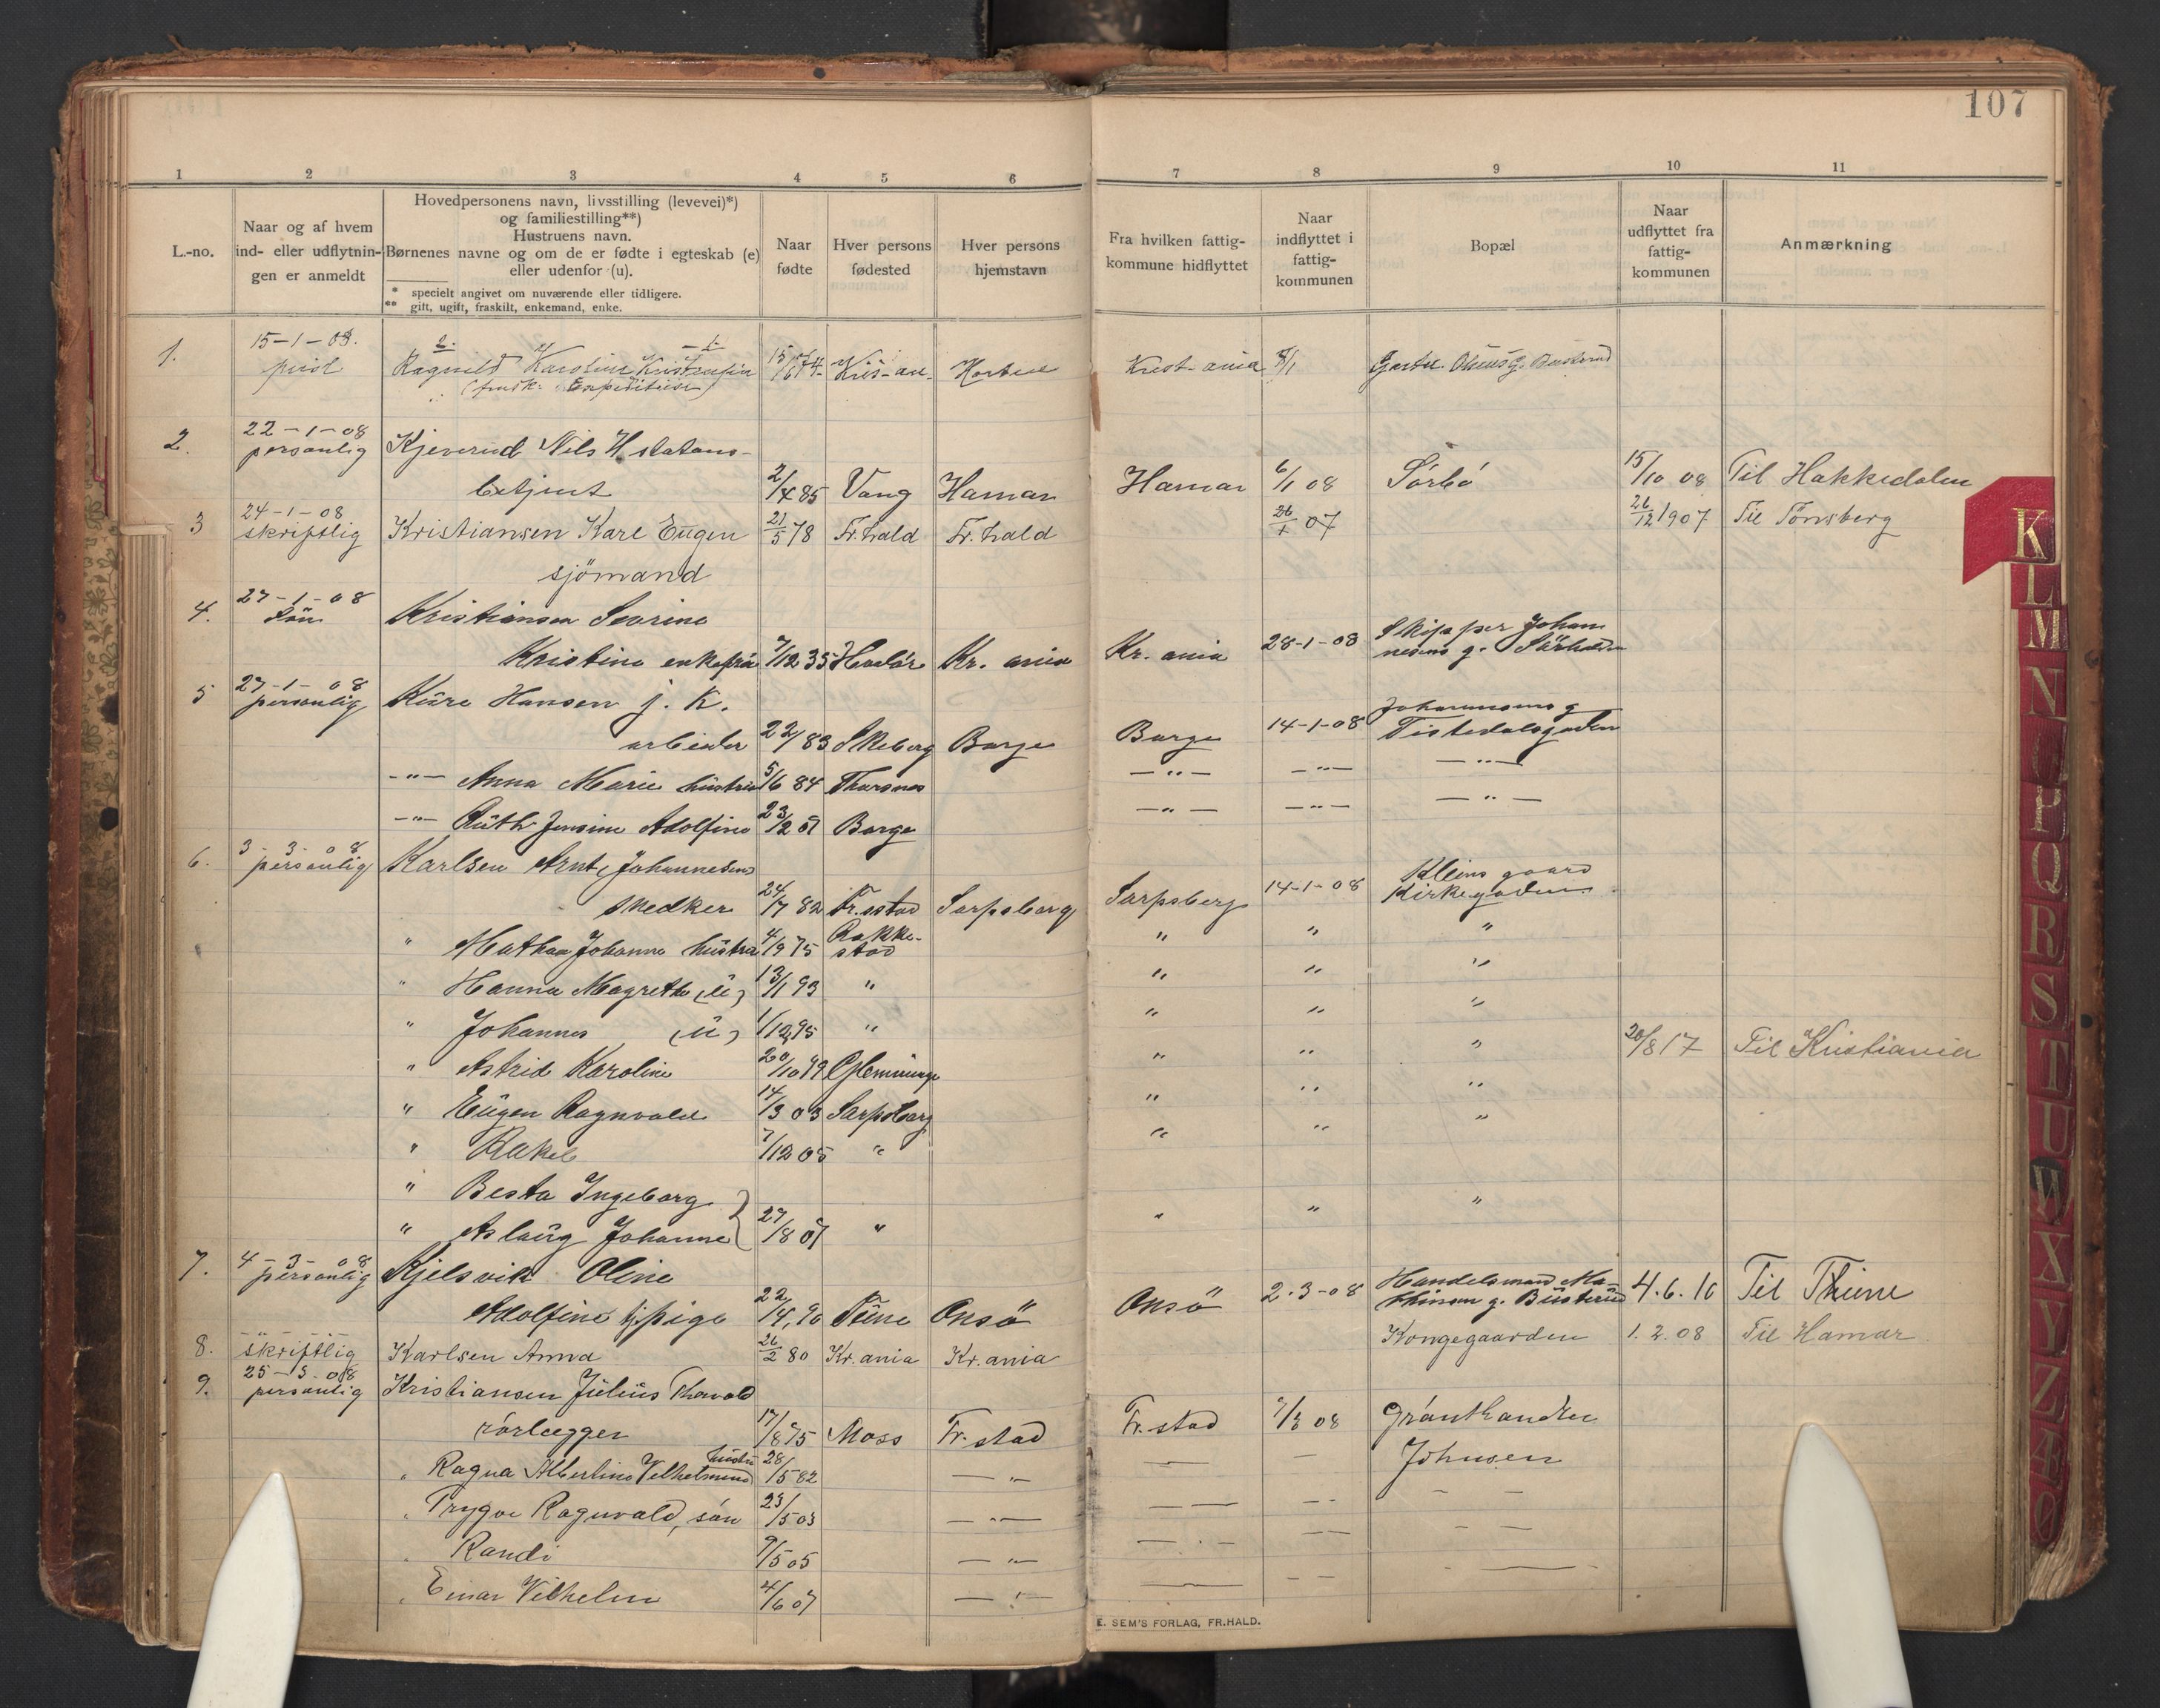 107
1 2 3 4 5 6 7 8 9 10 11
L.-no.
Naar og af hvem
ind- eller udflytnin-
gen er anmeldt
Hovedpersonens navn, livsstilling (levevei)*)
og familiestilling**)
Hustruens navn.
Børnenes navne og om de er fødte i egteskab (e)
eller udenfor (u).
* specielt angivet om nuværende eller tidligere.
** gift, ugift, fraskilt, enkemand, enke.
Naar
fødte
Hver persons
fødested
Hver persons
hjemstavn
Fra hvilken fattig-
kommune hidflyttet
Naar
indflyttet i
fattig-
kommunen
Bopæl
Naar
udflyttet fra
fattig-
kommunen
Anmærkning
1. 15-1-08.
Ragnild Karoline
2. 22-1-08
personlig Kjeverud Nils H.
betjent 2/4 85 Vang Hamar Hamar 6/1 08 Sörbö 15/10 08 Til Hakkedalen
3 24-1-08
skriftlig Kristiansen Karl Eugen 21/5 78 Fr.hald Fr.hald 26/1 07 26/12 1907 Til Tönsberg
sjömand
4. 27-1-08
Kristiansen Severine
Kristine enkefru 7/12 35 Hvalör Kr. ania Kr. ania 28-1-08 Skipper Johan
nesens g.
5 27-1-08
personlig Kure Hansen J. K.
arbeider 22/ 83 Skeberg Borge Borge 14-1-08 Johannesens g
Tistedalsgaden
-"- Anna Marie hustru 5/6 84 Thorsnes -"- -"- -"-
-"- Ruth Jensine Adolfine 23/2 07 Borge -"- -"- -"-
6. 3-3-08
personlig Karlsen Arnt, Johannesen
snedker 24/7 82 Fr.stad Sarpsborg Sarpsberg 14-1-08 Kleins gaard
Kirkegaden
" Mathea Johanne hustru 4/9 75 Rakke-
stad " " "
" Hanna Magrethe (u) 13/1 93 " " " "
" Johannes (u) 1/12 95 " " " "
" Astrid Karoline 20/10 99 Glemminge " " " 20/8 17 Til Kristiania
" Eugen Ragnvald 14/3 03 Sarpsborg " " "
" Rakel 7/12 05 " " " "
" Besta Ingeborg
" Aslaug Johanne 27/8 07 " " " "
7. 4-3-08
personlig Kjelsvik Oline
Adolfine tj.pige 22/4, 90 Tune Onsö Onsö 2-3-08 Handelsmand Ma-
thisen g. Busterud 4.6.10 Til Thune
8. skriftlig Karlsen Anna 26/2 80 Kr.ania Kr.ania Kongegaarden 1.2.08 Til Hamar
9. 25-3-08
personlig Kristiansen Julius Thorvald
rörlægger 17/8 75 Moss Fr.stad Fr.stad 7/3 08 Grönthandler
Johnsen
" Ragna Albertine Vilhelmine hustru 28/5 82 -"-
" Trygve Ragnvald, sön 23/5 03 -"-
" Randi 9/5 05 -"-
" Einar Vilhelm 4/6 07 -"-
E. SEM'S FORLAG, FR.HALD.
K
L
M
N
O
P
Q
R
S
T
U
W
X
Y
Z
Æ
Ø